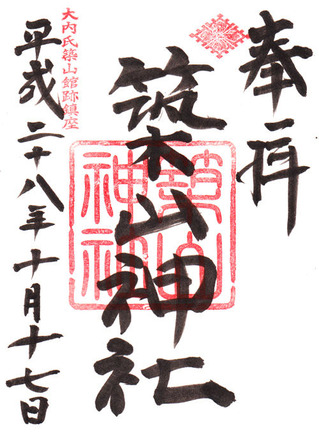 奉拝
築山神社
大内氏築山館跡鎮座
平成二十八年十月十七日
築山神社